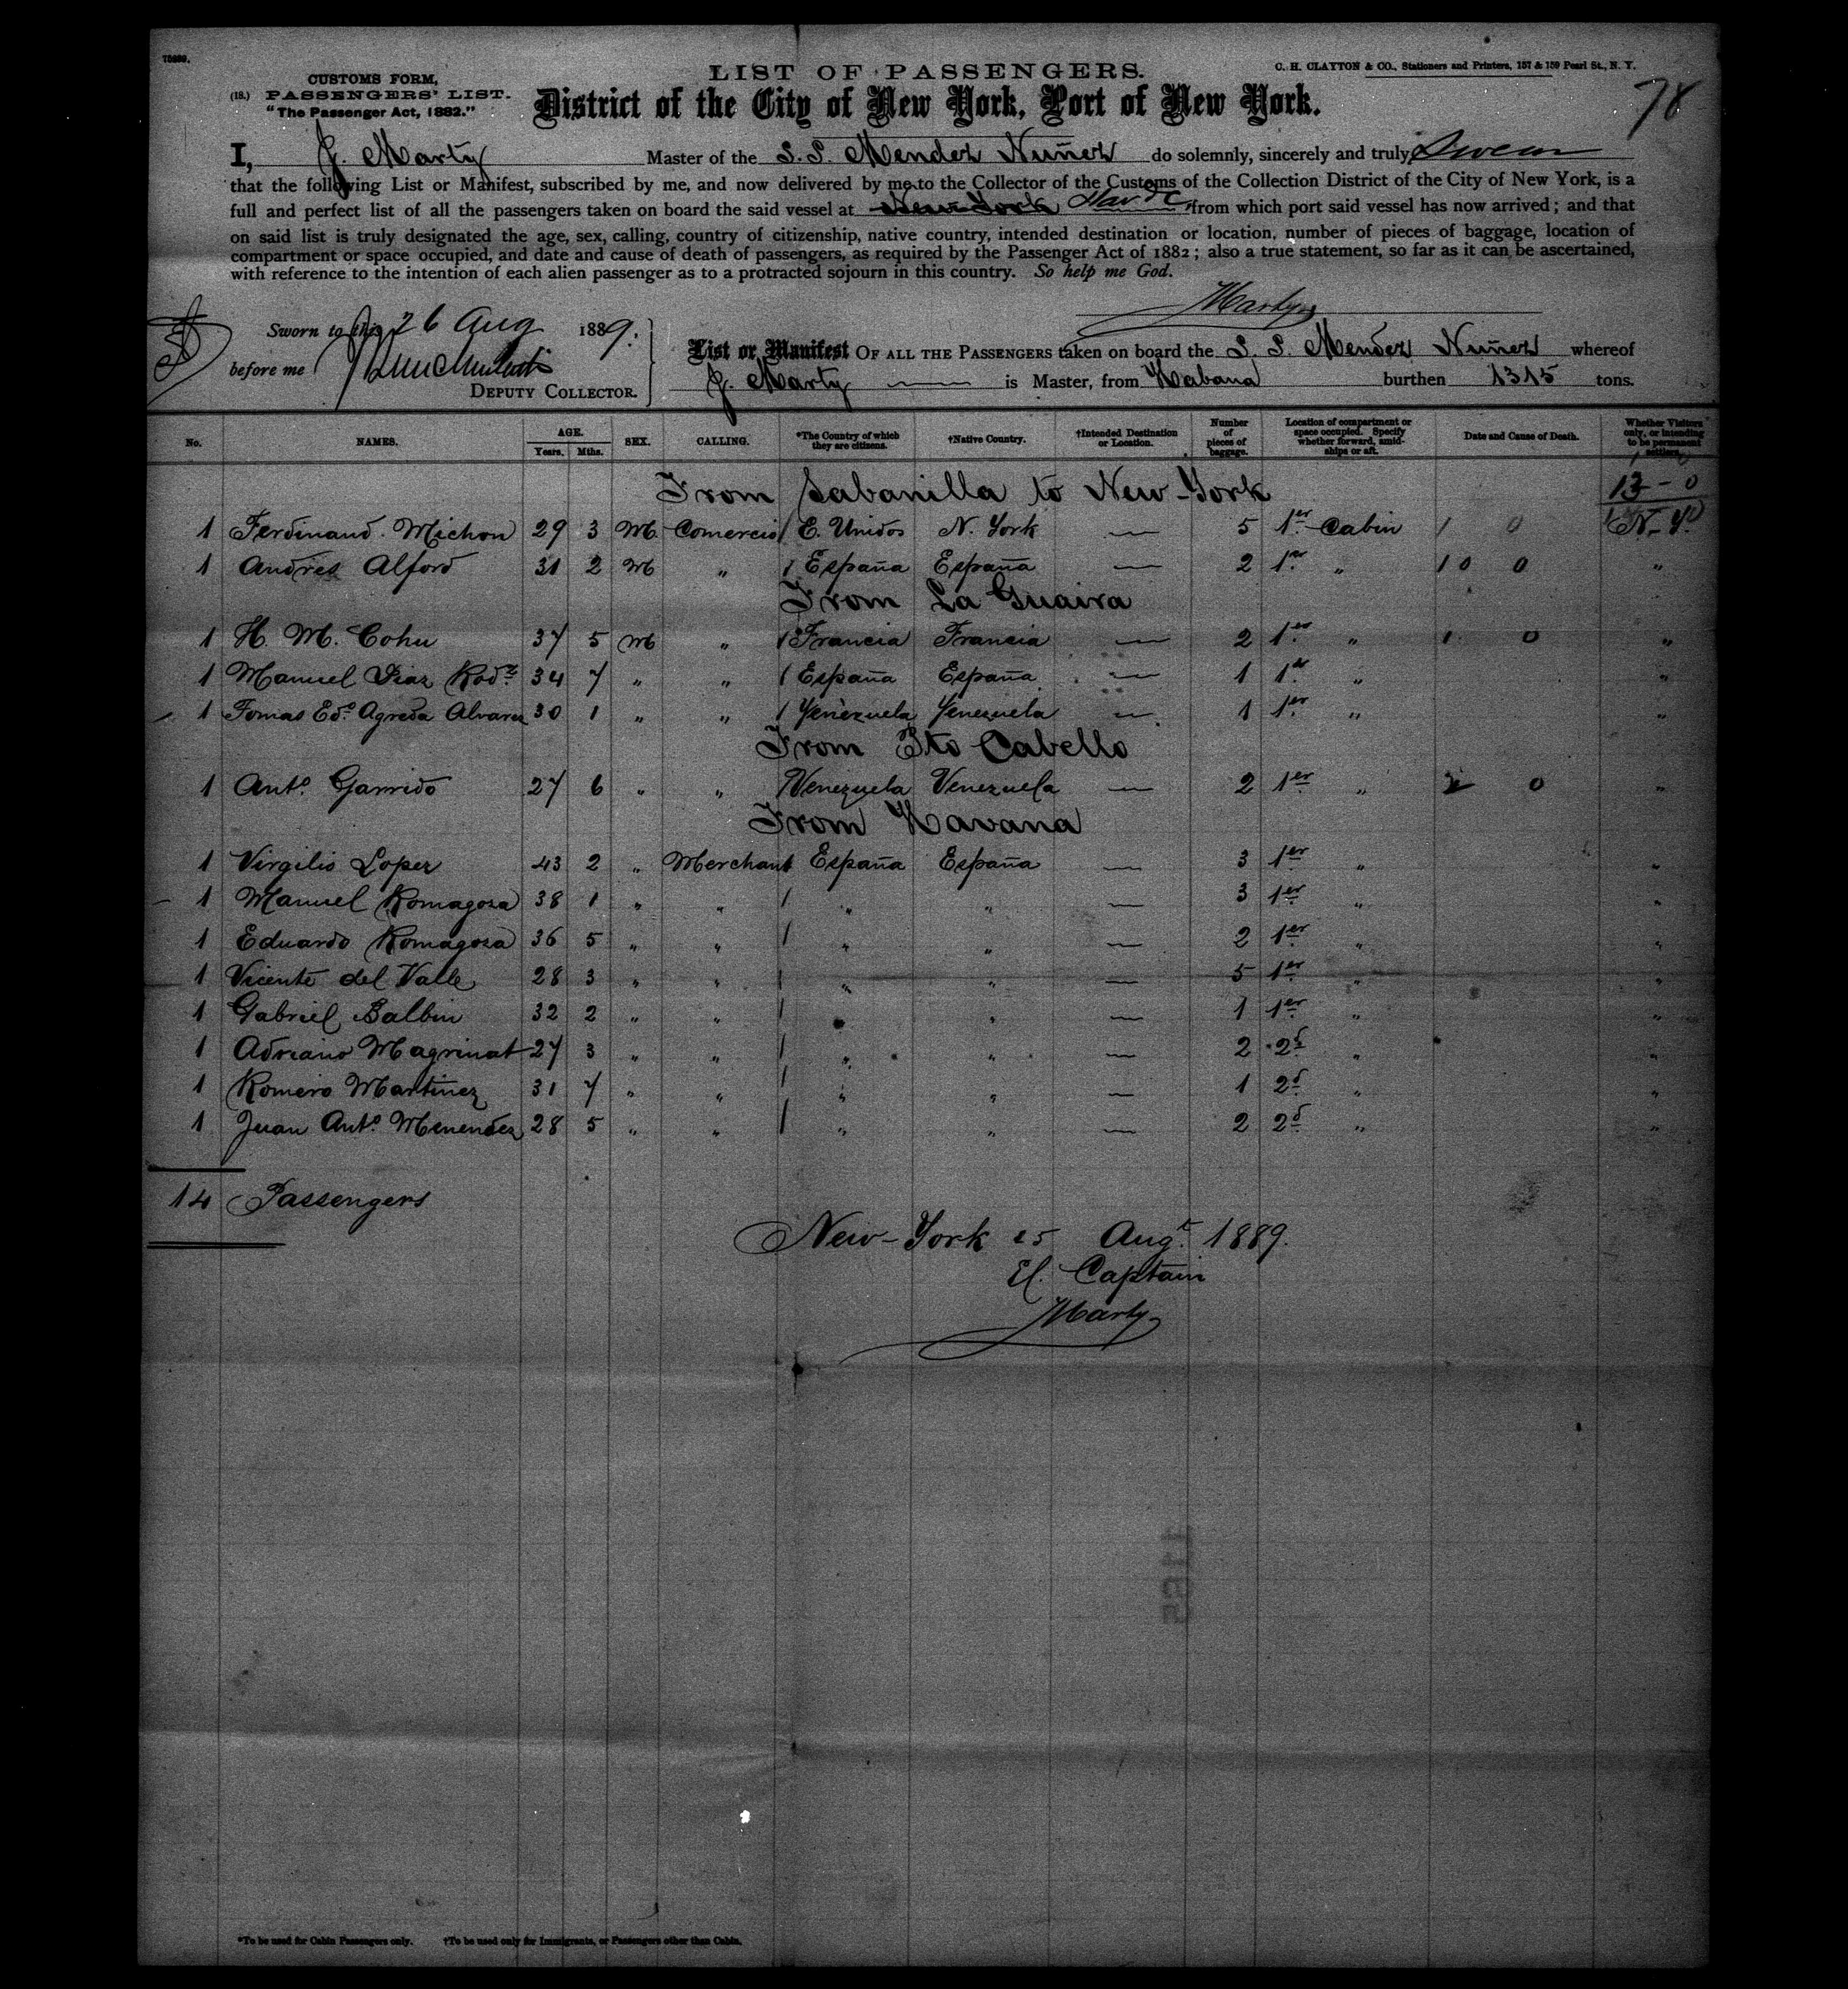 75699.
CUSTOMS FORM,
(18.) PASSENGERS' LIST.
"The Passenger Act, 1882."
LIST OF PASSENGERS.
C. H. CLAYTON & CO., Stationers and Printers, 157 & 159 Pearl St., N. Y.
District of the City of New York, Port of New York.
78
I, J. Marty Master of the S. S. Mendez Nuñez do solemnly, sincerely and truly Swear
that the following List or Manifest, subscribed by me, and now delivered by me to the Collector of the Customs of the Collection District of the City of New York, is a
full and perfect list of all the passengers taken on board the said vessel at New York Hav &c from which port said vessel has now arrived; and that
on said list is truly designated the age, sex, calling, country of citizenship, native country, intended destination or location, number of pieces of baggage, location of
compartment or space occupied, and date and cause of death of passengers, as required by the Passenger Act of 1882; also a true statement, so far as it can be ascertained,
with reference to the intention of each alien passenger as to a protracted sojourn in this country. So help me God.
Marty
Sworn to this 26 Aug 1889.
before me
DEPUTY COLLECTOR.
List or Manifest OF ALL THE PASSENGERS taken on board the S. S. Mendez Nuñez whereof
J. Marty is Master, from Habana burthen 1315 tons.
No. NAMES. AGE. Years. Mths. SEX. CALLING. *The Country of which they are citizens. †Native Country. †Intended Destination or Location. Number of pieces of baggage. Location of compartment or space occupied. Specify whether forward, amidships or aft. Date and Cause of Death. Whether Visitors only, or intending to be permanent settlers.
From Sabanilla to New-York 13 - 0
1 Ferdinand Michon 29 3 M. Comercio 1 E. Unidos N. York — 5 1er Cabin 1 0 N-Y.
1 Andrés Alford 31 2 M " 1 España España — 2 1er " 1 0 0 "
From La Guaira
1 H. M. Cohu 37 5 M " 1 Francia Francia — 2 1er " 1 0 "
1 Manuel Diaz Rodz 34 7 " " 1 España España — 1 1er " "
1 Tomas Edo Agreda Alvarez 30 1 " " 1 Venezuela Venezuela — 1 1er " "
From Pto Cabello
1 Anto. Garrido 27 6 " " 1 Venezuela Venezuela — 2 1er " 2 0 "
From Havana
1 Virgilio Lopez 43 2 " Merchant España España — 3 1er " "
1 Manuel Romagosa 38 1 " " 1 " " — 3 1er " "
1 Eduardo Romagosa 36 5 " " 1 " " — 2 1er " "
1 Vicente del Valle 28 3 " " 1 " " — 5 1er " "
1 Gabriel Balbin 32 2 " " 1 " " — 1 1er " "
1 Adriano Magrinat 27 3 " " 1 " " — 2 2d " "
1 Romero Martinez 31 7 " " 1 " " — 1 2d " "
1 Juan Anto. Menendez 28 5 " " 1 " " — 2 2d " "
14 Passengers
New-York 25 Augt. 1889.
El Captain
Marty
*To be used for Cabin Passengers only. †To be used only for Immigrants, or Passengers other than Cabin.